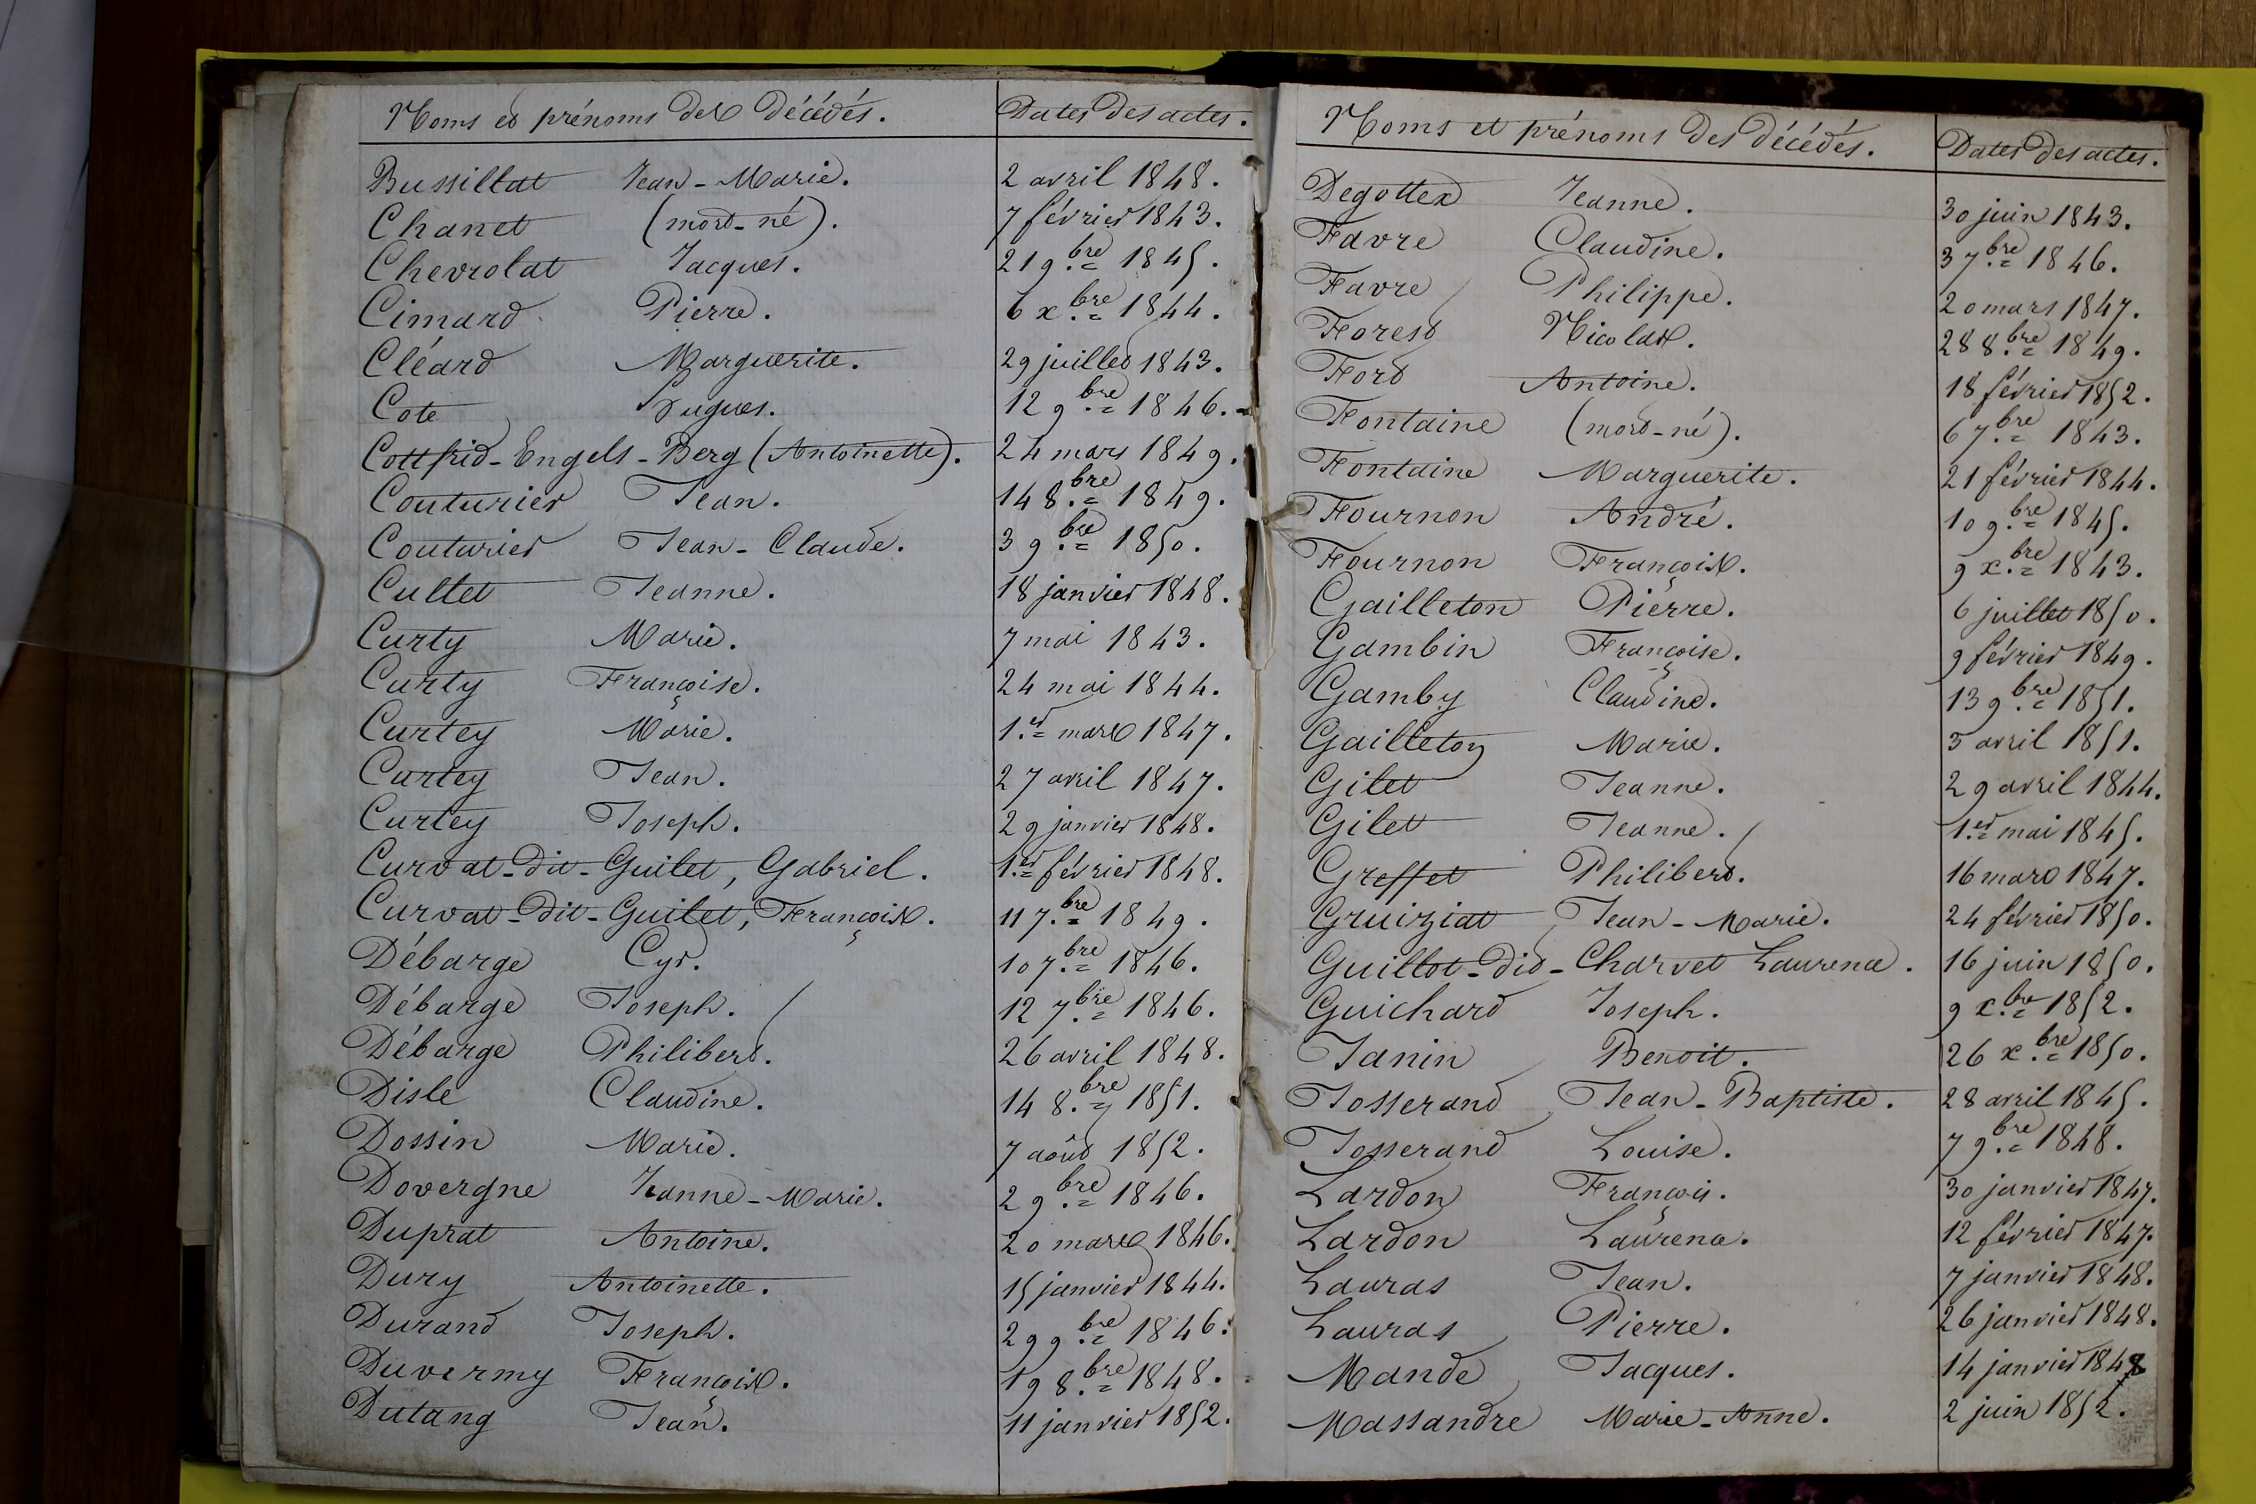 Noms et prénoms des décédés. Dates des actes.
Bussillat Jean-Marie. 2 avril 1848.
Chanet (mort-né). 7 février 1843.
Chevrolat Jacques. 21 9.bre 1845.
Cimard Pierre. 6 x.bre 1844.
Cléard Marguerite. 29 juillet 1843.
Cote Hugues. 12 9.bre 1846.
Cottfrid-Engels-Berg (Antoinette). 24 mars 1849.
Couturier Jean. 14 8.bre 1849.
Couturier Jean-Claude. 3 9.bre 1850.
Cultet Jeanne. 18 janvier 1848.
Curty Marie. 7 mai 1843.
Curty Françoise. 24 mai 1844.
Curtey Marie. 1.er mars 1847.
Curtey Jean. 27 avril 1847.
Curtey Joseph. 29 janvier 1848.
Curvat-dit-Guilet, Gabriel. 1.er février 1848.
Curvat-dit-Guilet, François. 11 7.bre 1849.
Débarge Cyr. 10 7.bre 1846.
Débarge Joseph. 12 7.bre 1846.
Débarge Philibert. 26 avril 1848.
Disle Claudine. 14 8.bre 1851.
Dossin Marie. 7 août 1852.
Dovergne Jeanne-Marie. 2 9.bre 1846.
Duprat Antoine. 20 mars 1846.
Dury Antoinette. 15 janvier 1844.
Durand Joseph. 29 9.bre 1846.
Duvermy François. 19 8.bre 1848.
Dutang Jean. 11 janvier 1852.
Noms et prénoms des décédés. Dates des actes.
Degottex Jeanne. 30 juin 1843.
Favre Claudine. 3 7.bre 1846.
Favre Philippe. 20 mars 1847.
Forest Nicolas. 28 8.bre 1849.
Fort Antoine. 18 février 1852.
Fontaine (mort-né). 6 7.bre 1843.
Fontaine Marguerite. 21 février 1844.
Fournon André. 10 9.bre 1845.
Fournon François. 9 x.bre 1843.
Gailleton Pierre. 6 juillet 1850.
Gambin Françoise. 9 février 1849.
Gamby Claudine. 13 9.bre 1851.
Gailleton Marie. 5 avril 1851.
Gilet Jeanne. 29 avril 1844.
Gilet Jeanne. 1.er mai 1845.
Greffet Philibert. 16 mars 1847.
Gruiziat Jean-Marie. 24 février 1850.
Guillot-dit-Charvet Laurence. 16 juin 1850.
Guichard Joseph. 9 x.bre 1852.
Janin Benoit. 26 x.bre 1850.
Josserand Jean-Baptiste. 28 avril 1845.
Josserand Louise. 7 9.bre 1848.
Lardon François. 30 janvier 1847.
Lardon Laurence. 12 février 1847.
Lauras Jean. 7 janvier 1848.
Lauras Pierre. 26 janvier 1848.
Mande Jacques. 14 janvier 1848
Massandre Marie-Anne. 2 juin 1852.